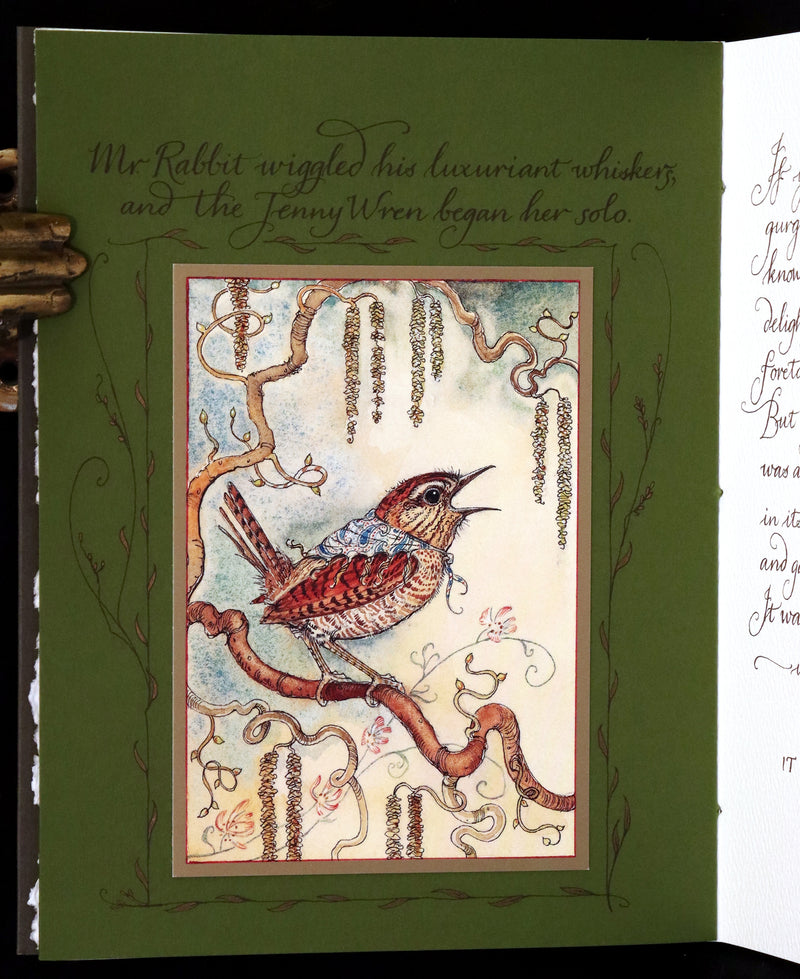 Mr. Rabbit wiggled his luxuriant whiskers,
and the Jenny Wren began her solo.
If
know
But
was a
in its
and
It was
IT